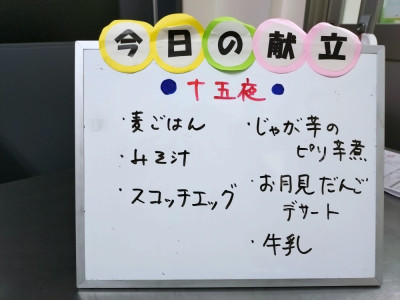 今日の献立
十五夜
・麦ごはん
・みそ汁
・スコッチエッグ
・じゃが芋の
ピリ辛煮
・お月見だんご
デザート
・牛乳